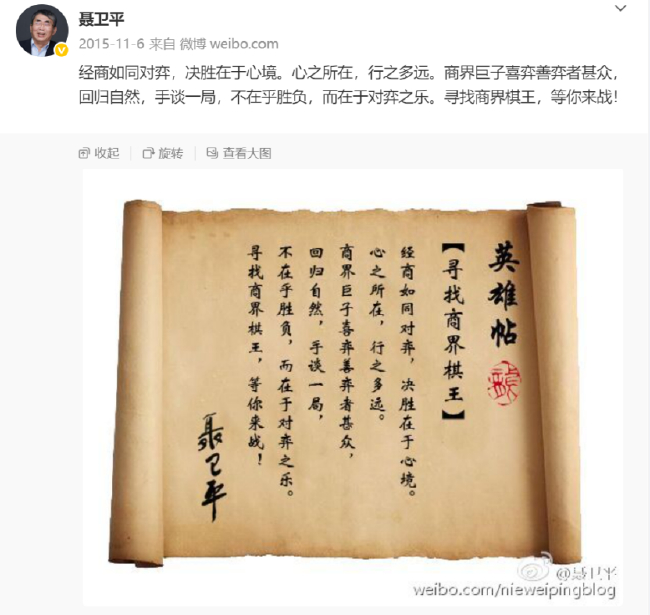 聂卫平
2015-11-6 来自 微博 weibo.com
经商如同对弈，决胜在于心境。心之所在，行之多远。商界巨子喜弈善弈者甚众，
回归自然，手谈一局，不在乎胜负，而在于对弈之乐。寻找商界棋王，等你来战！
收起
旋转
查看大图
英雄帖
龍
【寻找商界棋王】
经商如同对弈，决胜在于心境。
心之所在，行之多远。
商界巨子喜弈善弈者甚众，
回归自然，手谈一局，
不在乎胜负，而在于对弈之乐。
寻找商界棋王，等你来战！
聂卫平
@聂卫平
weibo.com/nieweipingblog